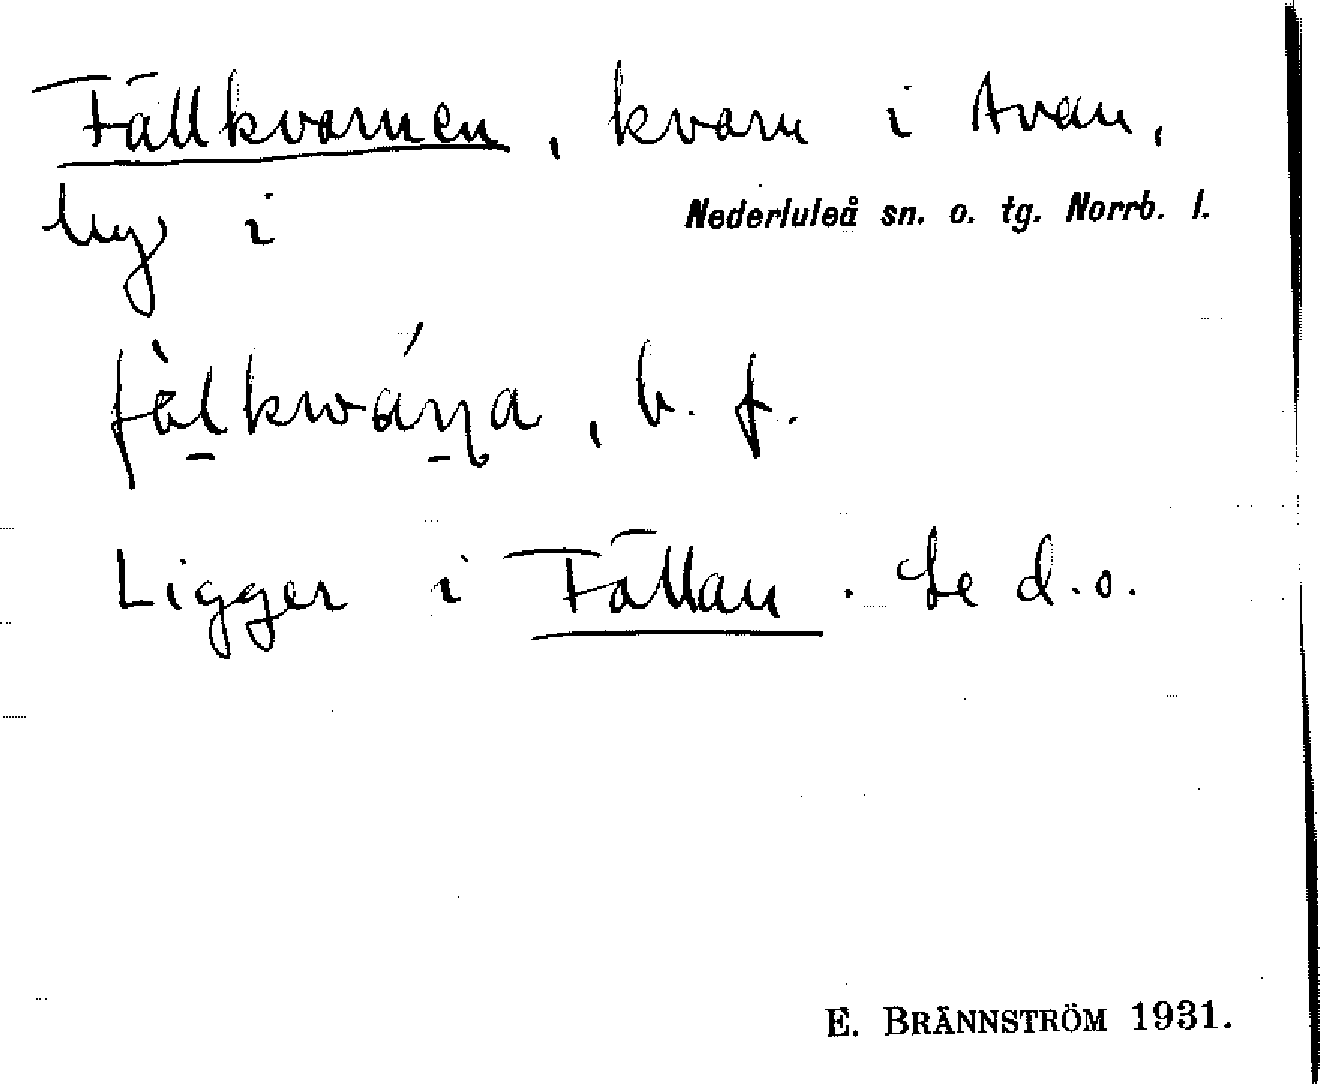 Fällkvarnen, kvarn i Avan,
by i
Nederluleå sn. o. tg. Norrb. l.
fὰlkwáṇa, b. f.
Ligger i Fällan. Se d.o.
E. BRÄNNSTRÖM 1931.